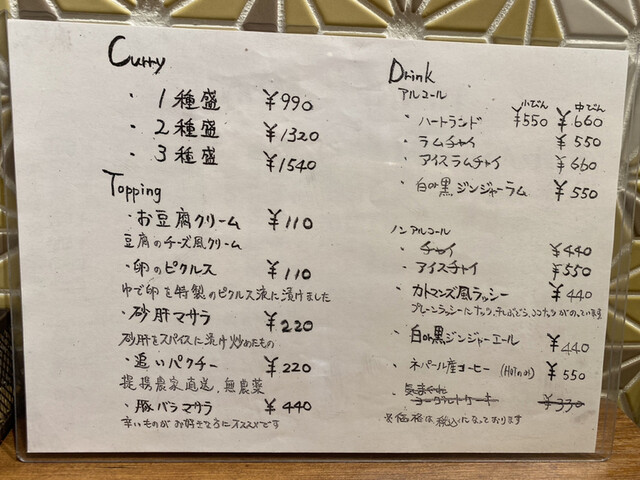 Curry
・1種盛 ¥990
・2種盛 ¥1320
・3種盛 ¥1540
Topping
・お豆腐クリーム ¥110
豆腐のチーズ風クリーム
・卵のピクルス ¥110
ゆで卵を特製のピクルス液に漬けました
・砂肝マサラ ¥220
砂肝をスパイスに漬け炒めたもの
・追いパクチー ¥220
提携農家直送、無農薬
・豚バラマサラ ¥440
辛いものがお好きな方にオススメです
Drink
アルコール
小びん 中びん
・ハートランド ¥550 ¥660
・ラムチャイ ¥550
・アイスラムチャイ ¥660
・白or黒ジンジャーラム ¥550
ノンアルコール
・チャイ ¥440
・アイスチャイ ¥550
・カトマンズ風ラッシー ¥440
プレーンラッシーにナッツ、干しぶどう、ココナッツがのっています
・白or黒ジンジャーエール ¥440
・ネパール産コーヒー (Hot only) ¥550
・気まぐれ
ヨーグルトケーキ ¥330
※価格は税込になっております